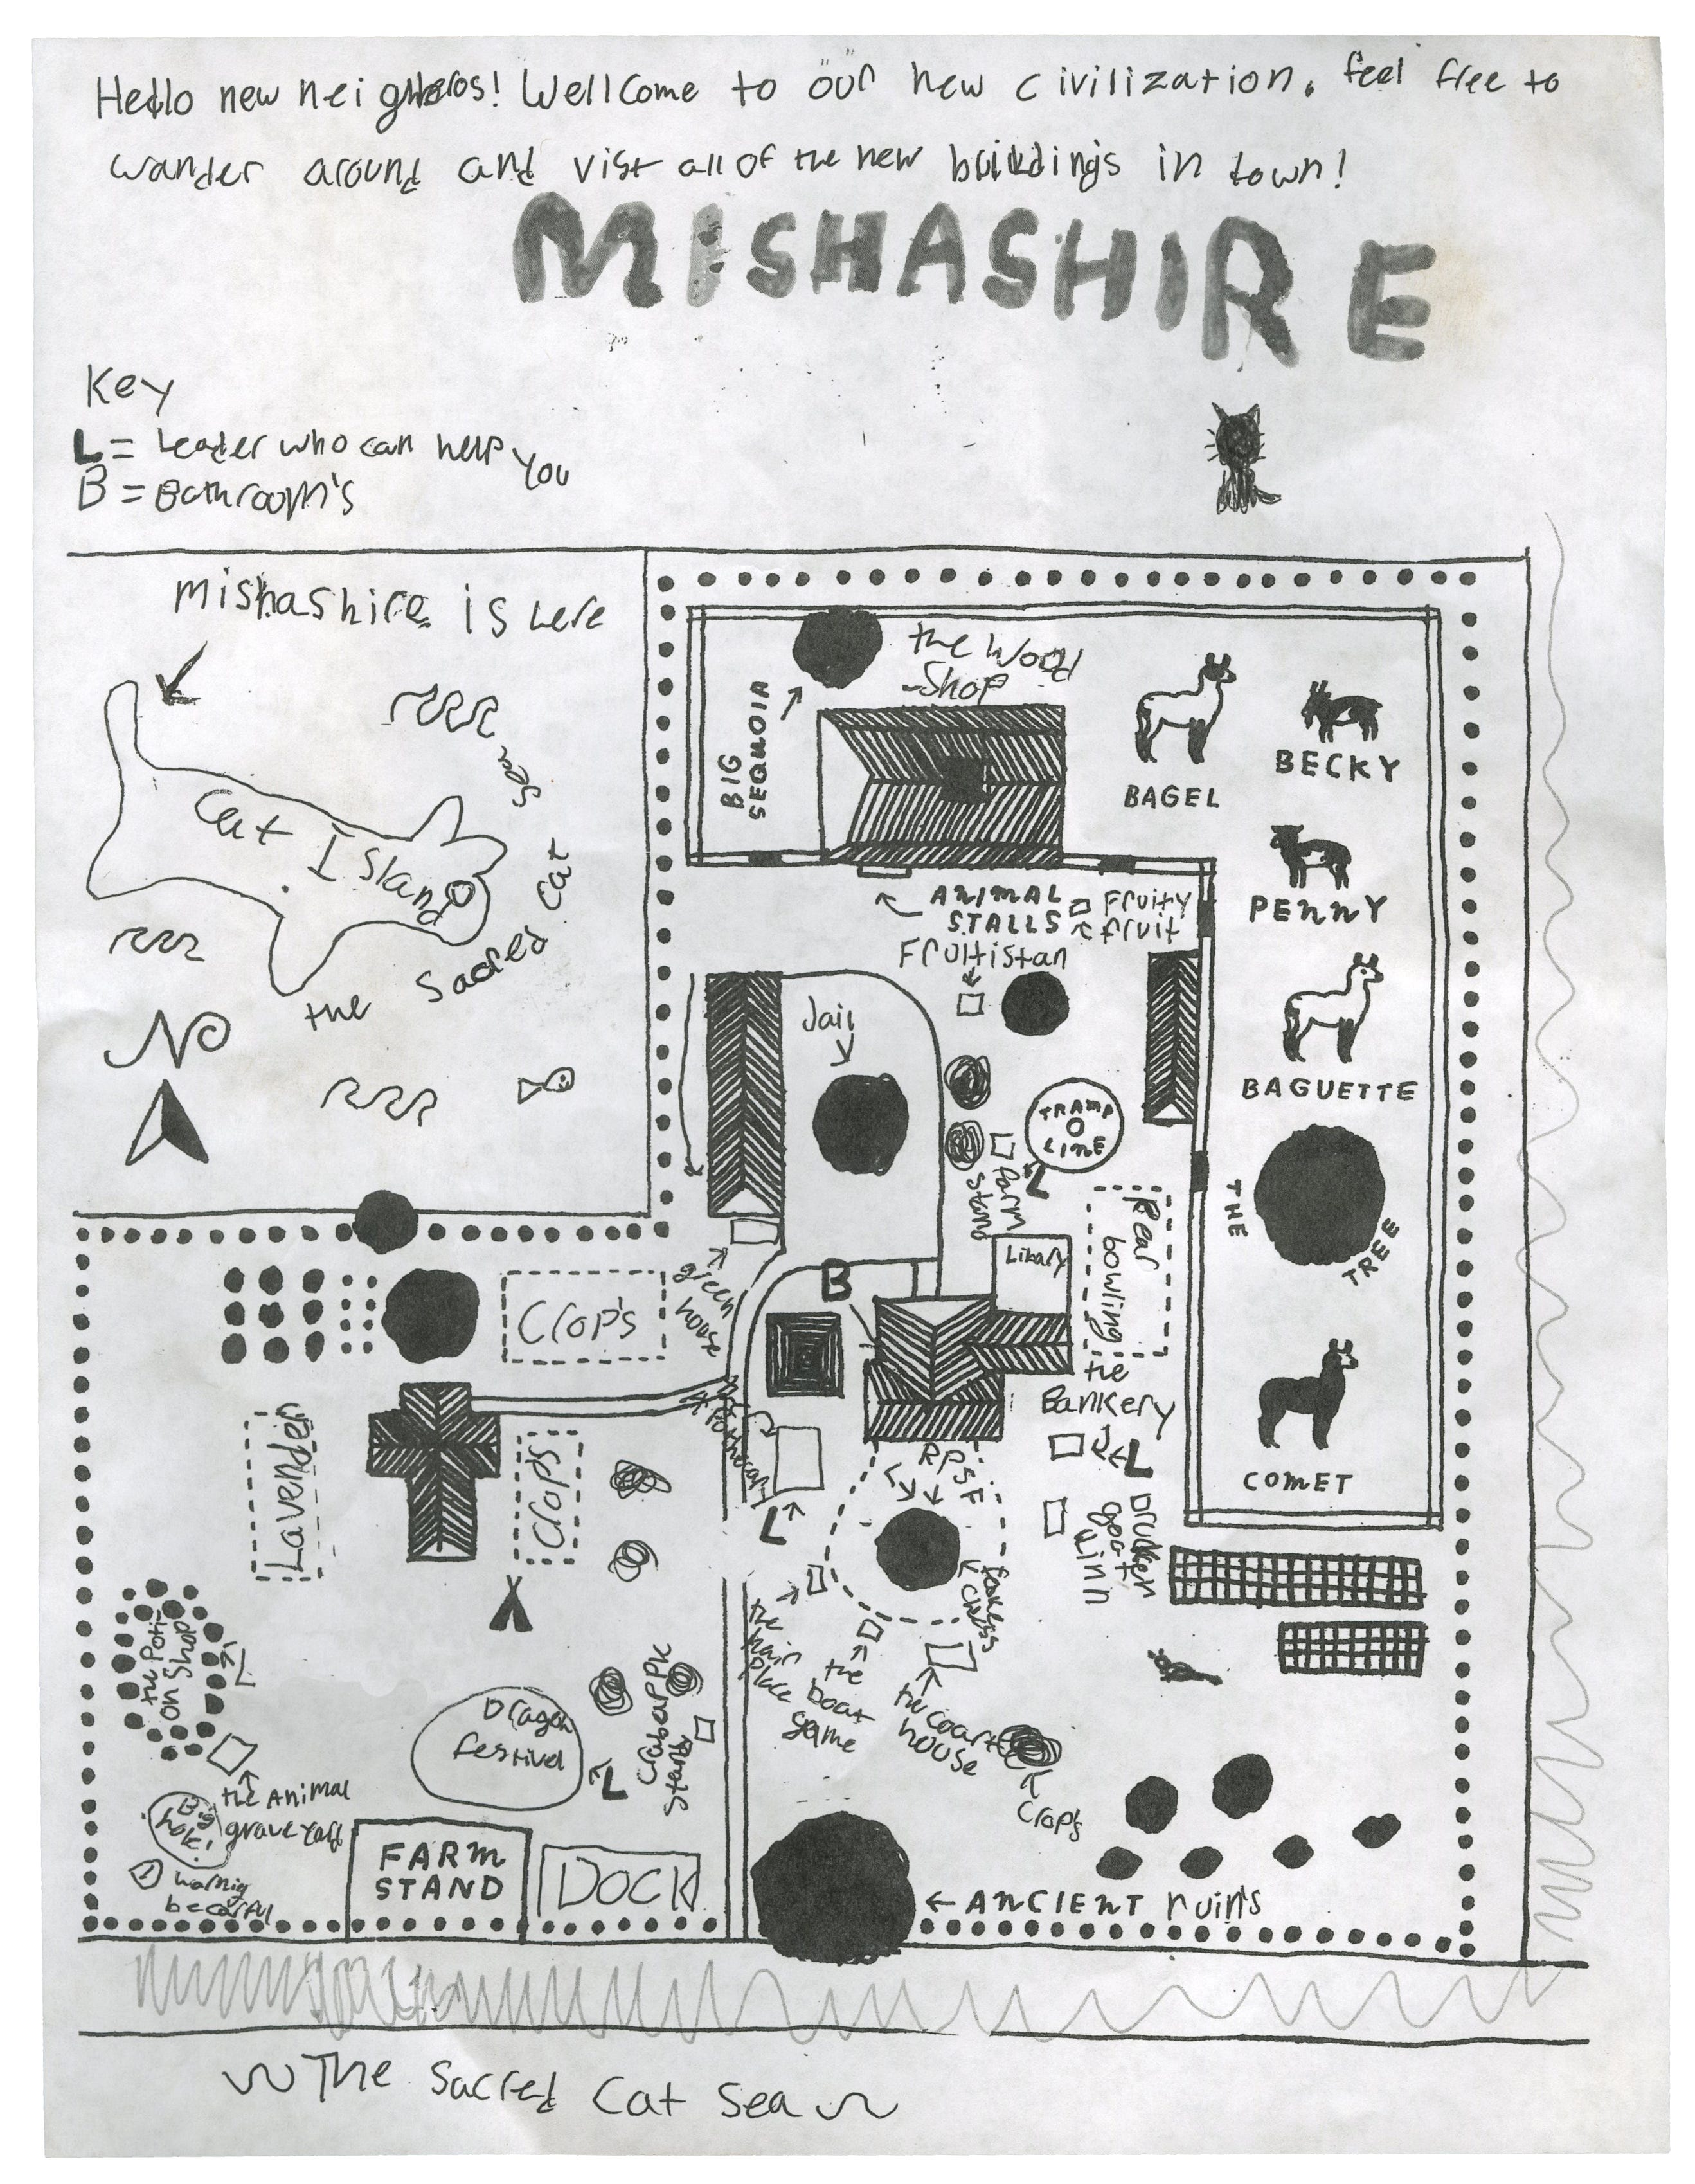 Hello new neighbros! Wellcome to our new civilization. feel free to
wander around and vist all of the new buildings in town!
MISHASHIRE
Key
L = Leader who can help you
B = Bathroom's
mishashire is here
Cat Island
the Sacred Cat Sea
N
BIG
SEQUOIA
the Wood
Shop
BAGEL
BECKY
PENNY
BAGUETTE
THE
TREE
COMET
ANIMAL
STALLS
Fruity
fruit
Fruitistan
Jail
TRAMP
O
LINE
L
Farm
stand
Libary
Rear
bowling
B
green
house
Crop's
Crop's
Lavender
L
RPSF
the
Bankery
L
Drunken
goat
inn
the
hair
place
the
boat
game
the court
house
Crops
the Poti-
on Shop
L
the Animal
graveyard
Big
hole!
warnig
be carful
Dragon
festivel
L
stand
FARM
STAND
DOCK
ANCIENT ruin's
The Sacred Cat Sea